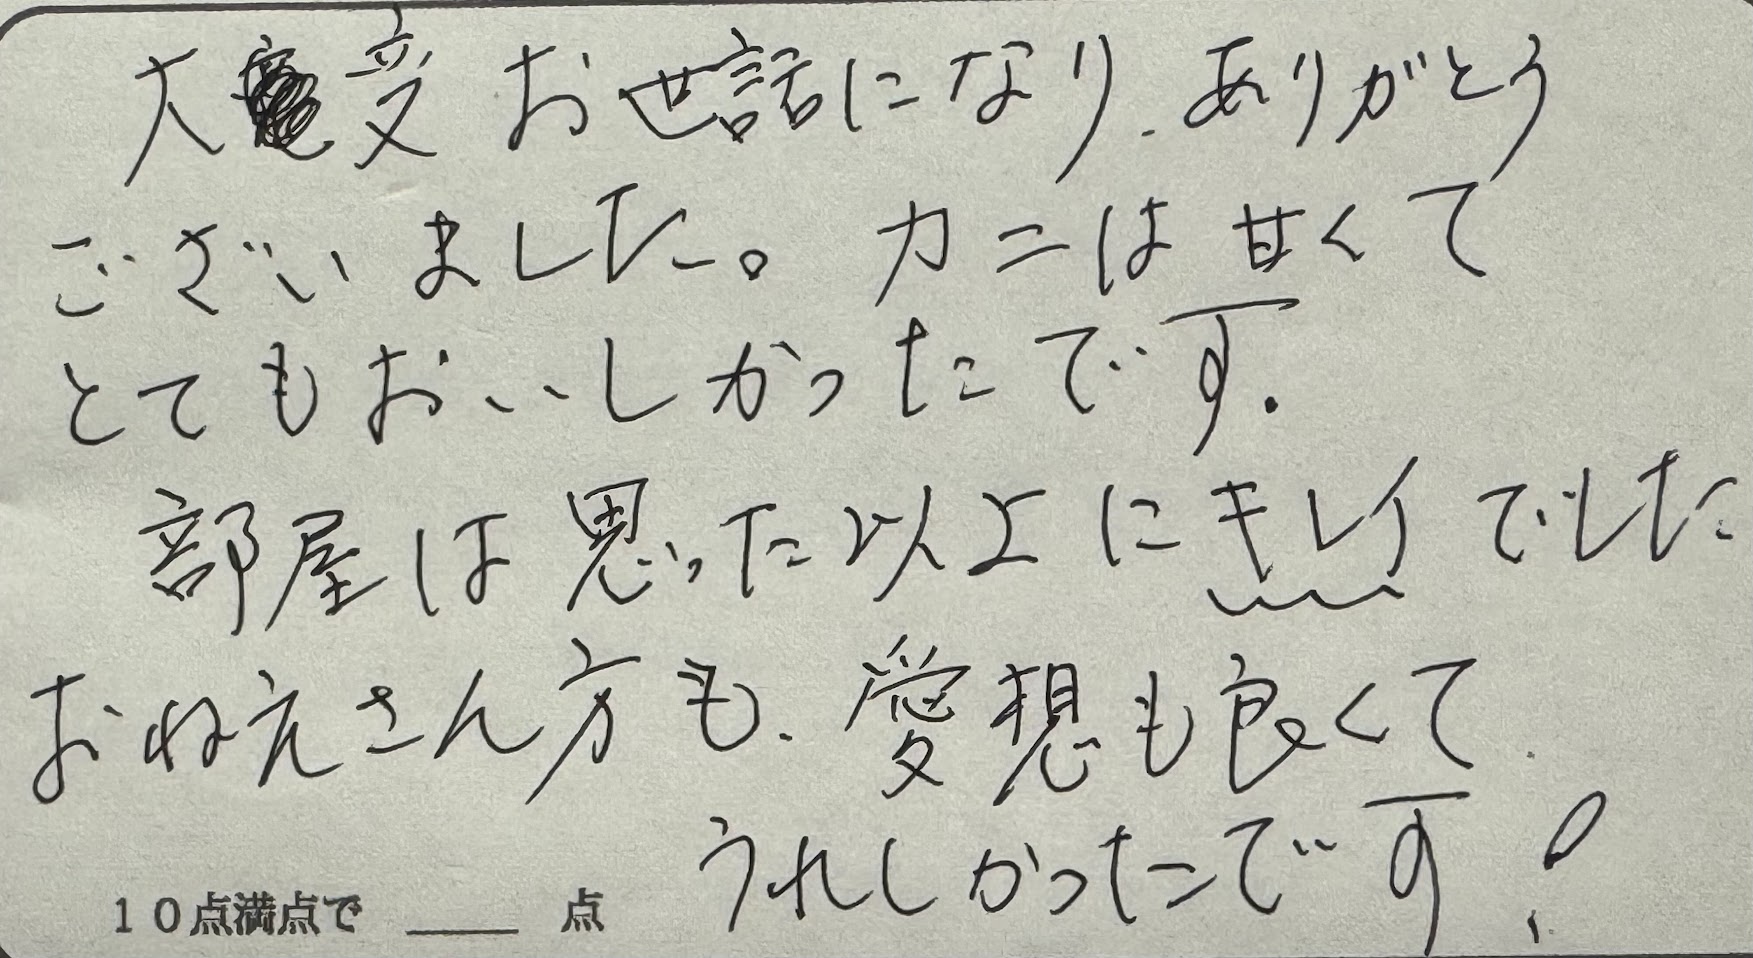 大変お世話になり、ありがとう
ございました。カニは甘くて
とてもおいしかったです。
部屋は思った以上にキレイでした
おねえさん方も、愛想も良くて
うれしかったです!
10点満点で ____ 点